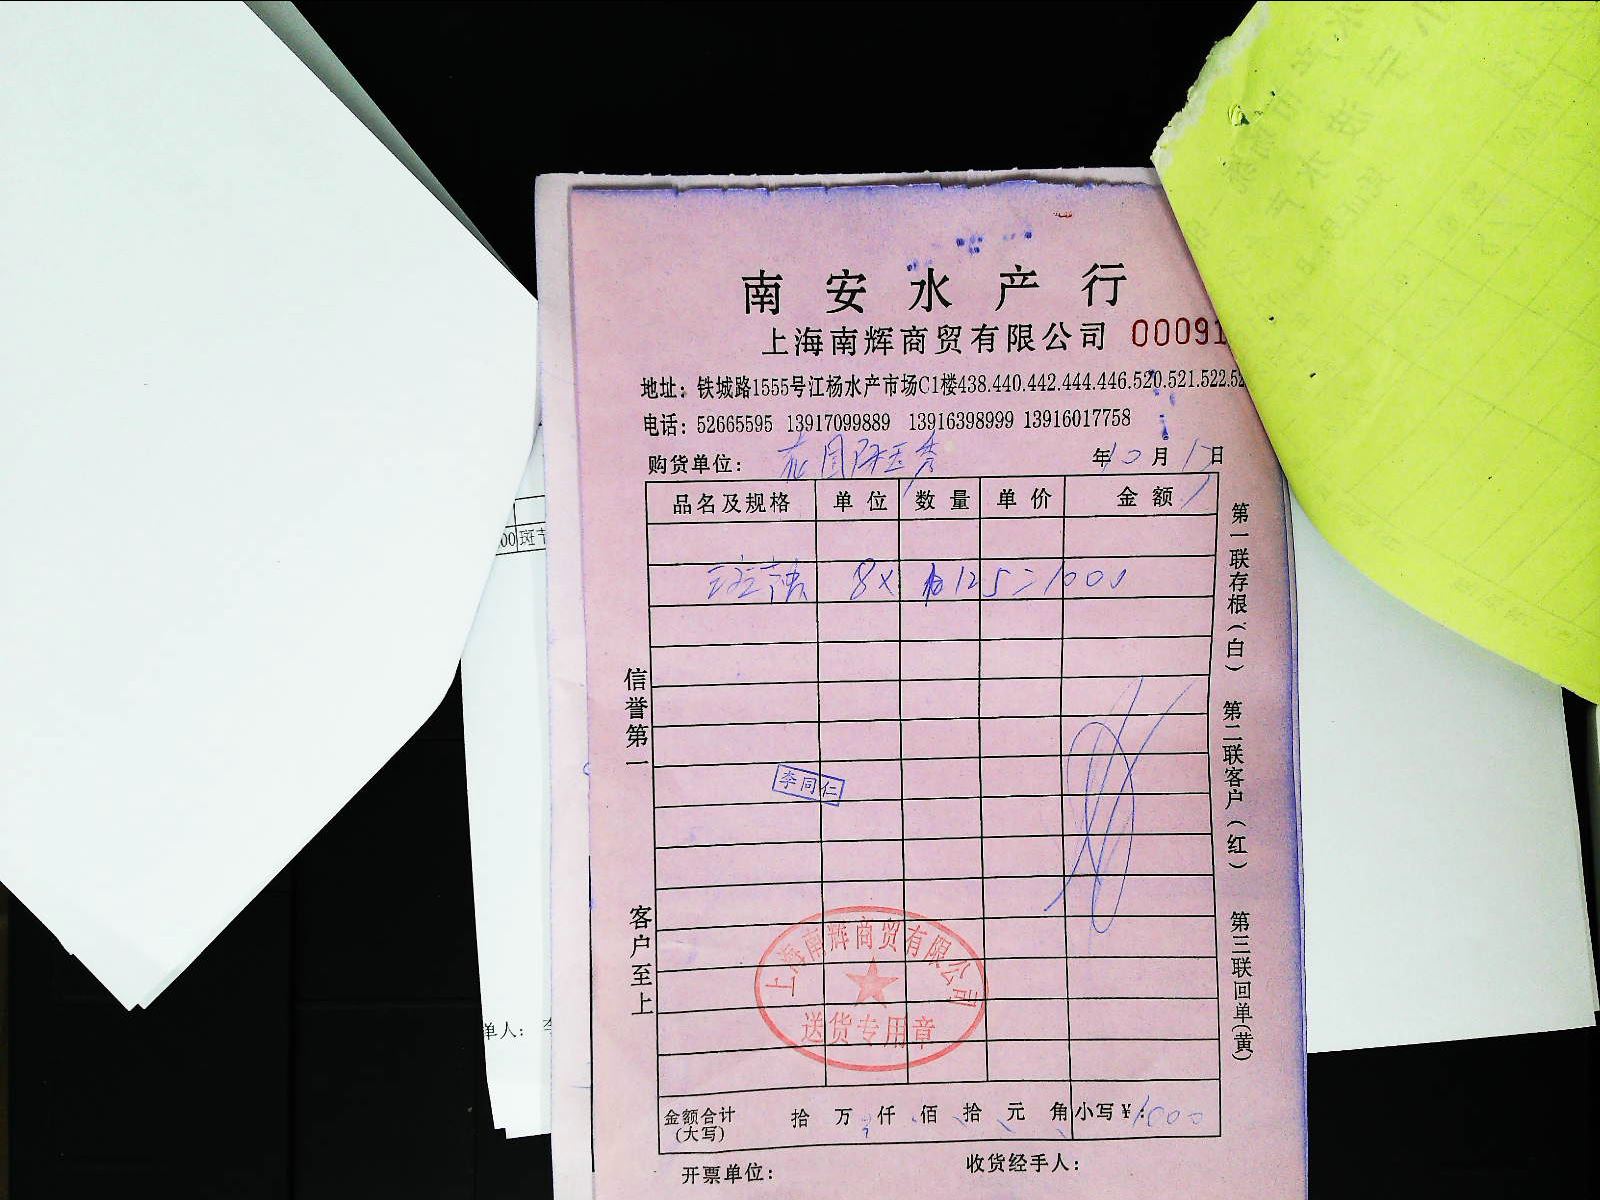 南安水产行
上海南辉商贸有限公司 00091
地址：铁城路1555号江杨水产市场C1楼438.440.442.444.446.520.521.522.52
电话：52665595 13917099889 13916398999 13916017758
购货单位：
年10月17日
品名及规格 单位 数量 单价 金额
斑节 8× 125=1000
信誉第一 客户至上
李同仁
上海南辉商贸有限公司
送货专用章
第一联存根（白） 第二联客户（红） 第三联回单（黄）
金额合计（大写） 拾 万 仟 佰 拾 元 角 小写￥：1000
开票单位： 收货经手人：
00 斑节
单人：